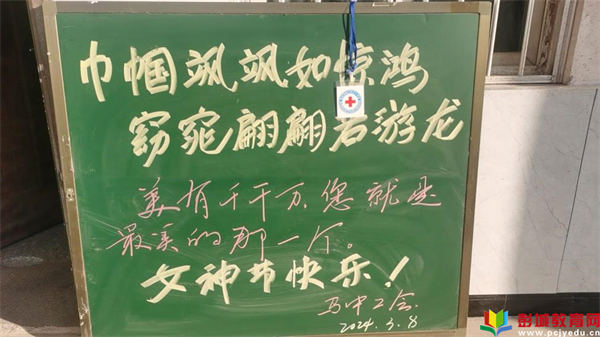 巾帼飒飒如惊鸿
窈窕翩翩若游龙
美有千千万,您就是
最美的那一个。
女神节快乐!
马中工会
2024.3.8
彭城教育网
www.pcjyedu.cn